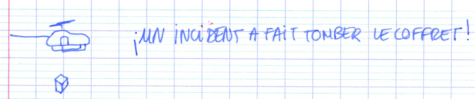 ¡UN INCIDENT A FAIT TOMBER LE COFFRET!